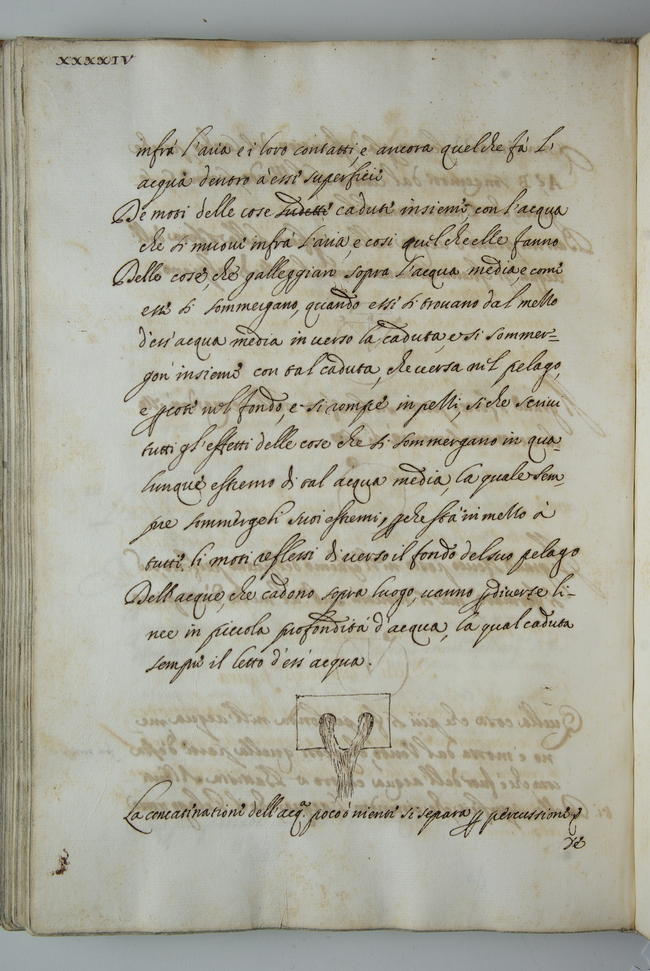 XXXXIV
infrà l'aria e i loro contatti, e ancora quel che fà l'
acqua dentro à essi superficii
De moti delle cose sudetti cadute insieme, con l'acqua
che si muove infrà l'aria, e così quel ch'elle fanno
Delle cose, che galleggiano sopra l'acqua media, e come
esse si sommergano, quando essi si trovano dal mezzo
d'ess'acqua media inverso la caduta, e si sommer=
gon' insieme con tal caduta, che versa nel pelago,
e p̱cote nel fondo, e si rompe in pelli, sì che scrivi
tutti gl'effetti delle cose che si sommergano in qua-
lunque estremo di tal acqua media, la quale sem-
pre sommerge li suoi estremi, p̱che stà in mezzo à
tutti li moti reflessi di verso il fondo del suo pelago
Dell'acque, che cadono sopra luogo, vanno p̱ diverse li-
nee in piccola profondità d'acqua, la qual caduta
sempre il letto d'ess'acqua.
La concatinatione dell'acq.ª poco ò niente si separa p̱ percussione,